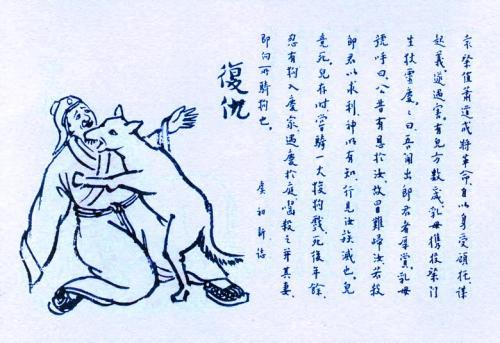 復仇
袁粲值蕭道成將革命自以身受顧托謀
起義遂遇害有兒方數歲乳母攜投粲門
生狄靈慶慶曰吾聞出郎君者厚賞乳母
號呼曰公昔有恩於汝故冒難歸汝若殺
郎君以求利神明有知行見汝族滅也兒
竟死兒在時嘗騎一大狗戲死後年餘
忽有狗入慶家遇慶於庭噬殺之并其妻
即向所騎狗也
虞初新誌